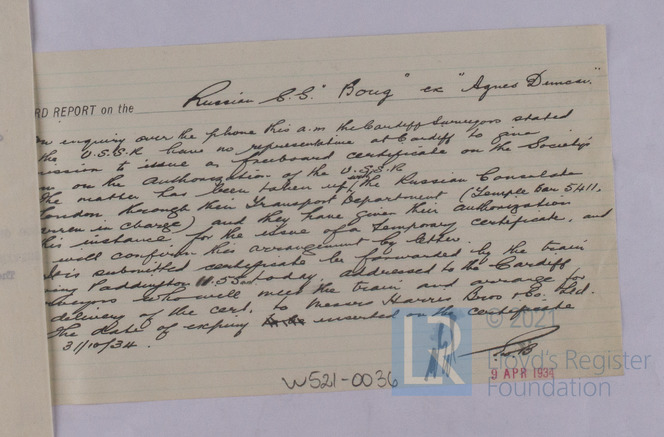 RD REPORT on the Russian S.S. "Boug" ex "Agnes Duncan."
on enquiry over the phone this a.m the Cardiff Surveyors stated
the U.S.S.R have no representative at Cardiff to give
ission to issue a freeboard certificate on the Society's
on the authorization of the U.S.S.R
The matter has been taken up with the Russian Consulate
London, through their Transport Department (Temple Bar 5411.
in charge) and they have given their authorization
this instance for the issue of a temporary certificate, and
will confirm this arrangement by letter.
It is submitted certificate be forwarded by the train
ing Paddington 11.55am today addressed to the Cardiff
veyors who will meet the train and arrange for
delivery of the cert. to Messrs Harris Bros & Co. Ltd.
The date of expiry inserted on the certificate
31/10/34.
9 APR 1934
W521-0036
LR
© 2021
Lloyd's Register
Foundation